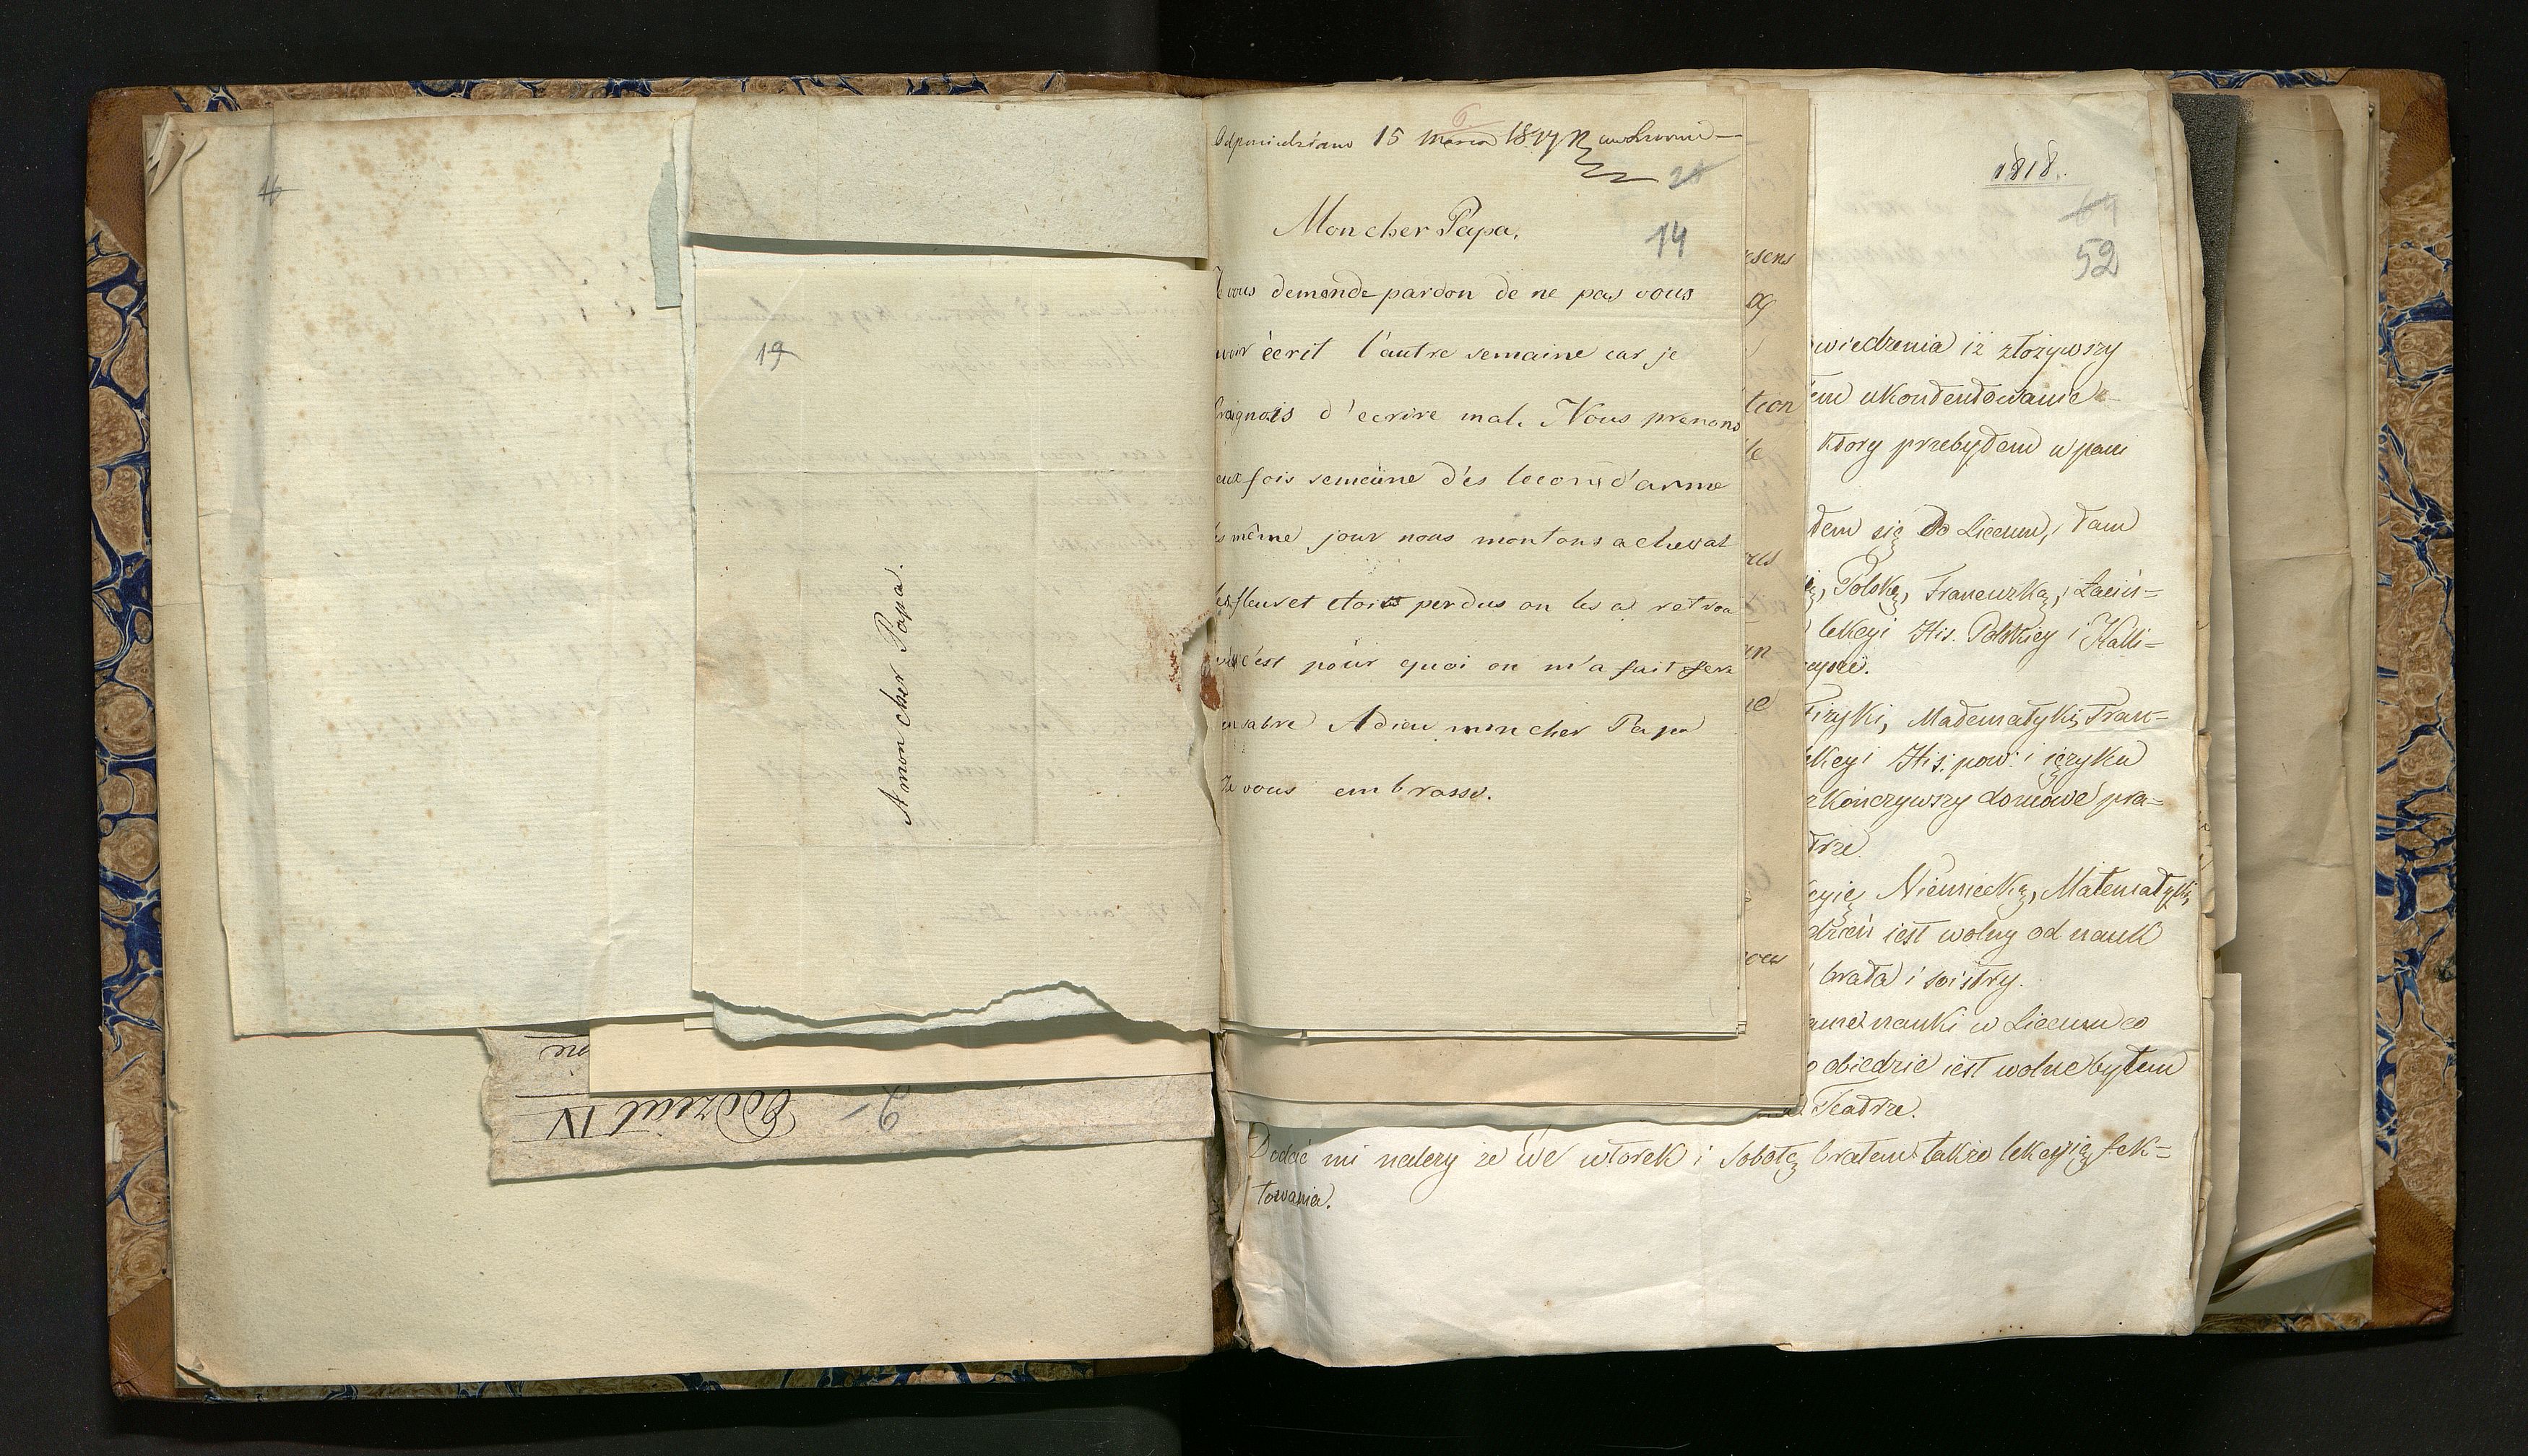 16
19
A mon cher Papa.
Oddział IV
2-
6.
Odpowiedziano 15 Marca 1817 R
21
Mon cher Papa.
14
Je vous demande pardon de ne pas vous
avoir écrit l'autre semaine car je
craignois d'ecrire mal. Nous prenons
eux fois semeine dés lecons d'arme
même jour nous montons a cheval
fleuret etoit perdus on les a retrou
c'est pour quoi on m'a fait
sabre Adieu mon cher Papa
Je vous embrasse.
esens
tion
1818.
64
52
wiedzenia iż złożywszy
em ukontentowanie
ktory przebyłem w pani
łem się do Liceum, tam
Polską, Francuzką, Łaciń=
lekcyi His. Polskiey i Kalli=
Fizyki, Matematyki, Fran=
kcyi His: pow: i ięzyku
kończywszy domowe pra=
trze.
cyię Niemiecką, Matematyki,
dzień iest wolny od nauk
brata i soistry.
nauki w Liceum co
o obiedzie iest wolne byłem
Teatrze.
Dodać mi należy że We wtorek i Sobotę brałem także lekcyią fek=
towania.